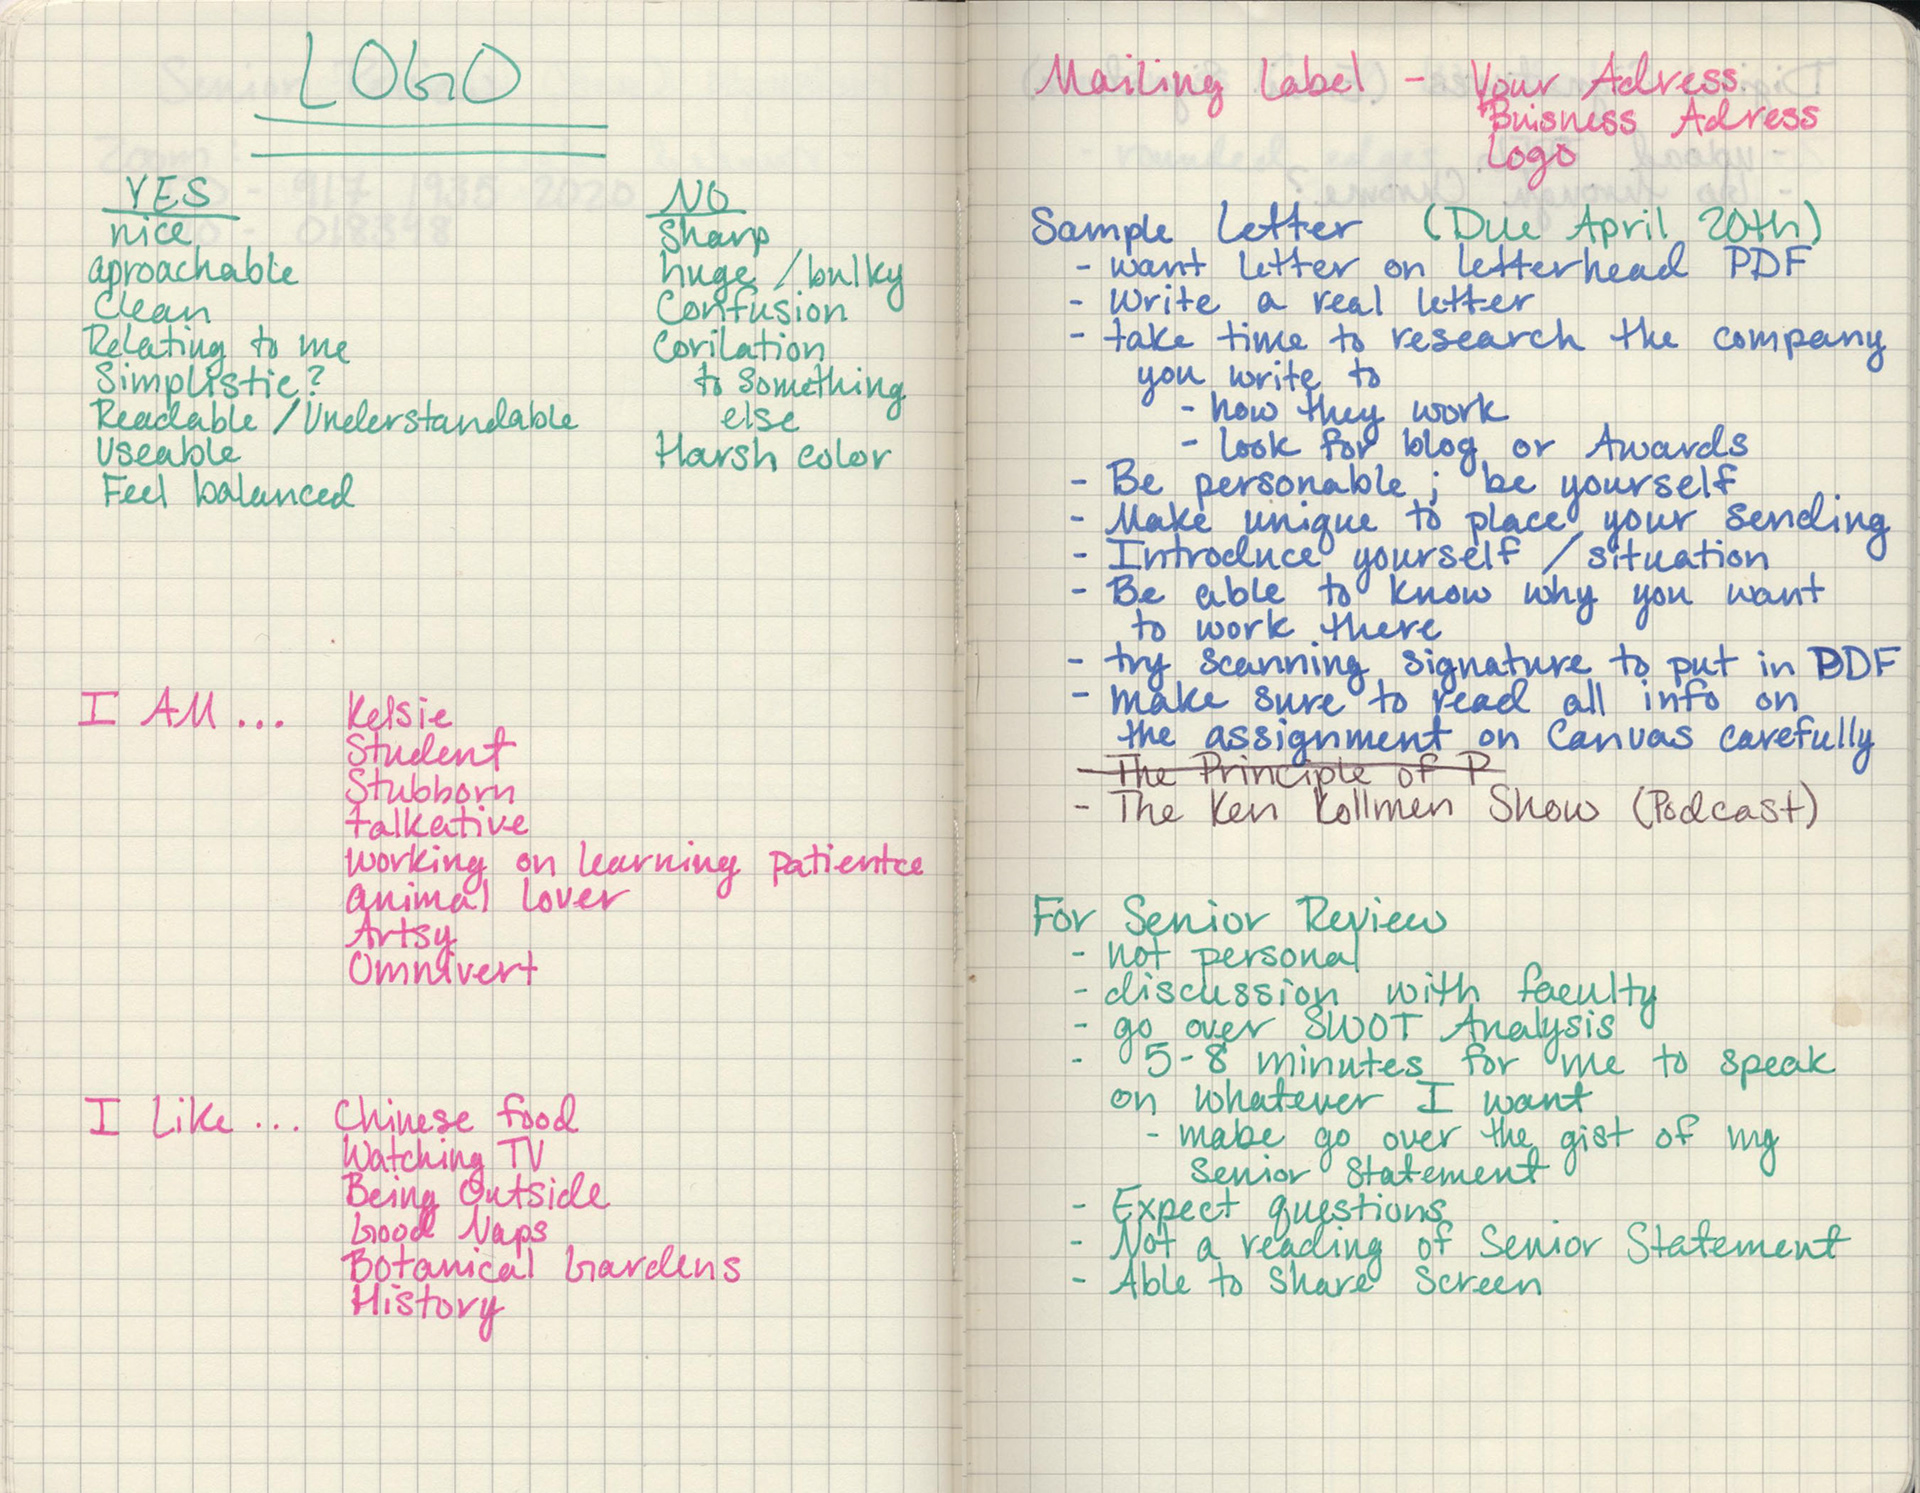 LOGO
YES
nice
aproachable
Clean
Relating to me
Simplistic?
Readable / Understandable
Useable
Feel balanced
NO
Sharp
huge / bulky
Confusion
Corilation
to something
else
Harsh color
I AM ... Kelsie
Student
Stubborn
talkative
working on learning patientce
animal lover
Artsy
Omnivert
I Like ... Chinese food
Watching TV
Being Outside
Good Naps
Botanical Gardens
History
Mailing Label - Your Adress
Buisness Adress
Logo
Sample Letter (Due April 20th)
- want letter on letterhead PDF
- Write a real letter
- take time to research the company
you write to
- how they work
- look for blog or Awards
- Be personable ; be yourself
- Make unique to place your sending
- Introduce yourself / situation
- Be able to know why you want
to work there
- try scanning signature to put in PDF
- make sure to read all info on
the assignment on Canvas carefully
- The Principle of P
- The Ken Kollmen Show (Podcast)
For Senior Review
- not personal
- discussion with faculty
- go over SWOT Analysis
- 5-8 minutes for me to speak
on whatever I want
- mabe go over the gist of my
Senior Statement
- Expect questions
- Not a reading of Senior Statement
- Able to Share Screen